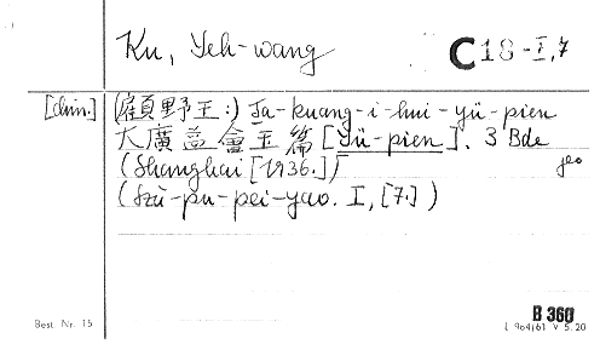 Ku, Yeh-wang
C 18-I,7
[chin.] (顧野王:) Ta-kuang-i-hui-yü-pien
大廣益會玉篇 [Yü-pien]. 3 Bde
(Shanghai [1936.])
(Szù-pu-pei-yao. I, [7.])
Best. Nr. 15
B 360
L 964/61 V 5.20